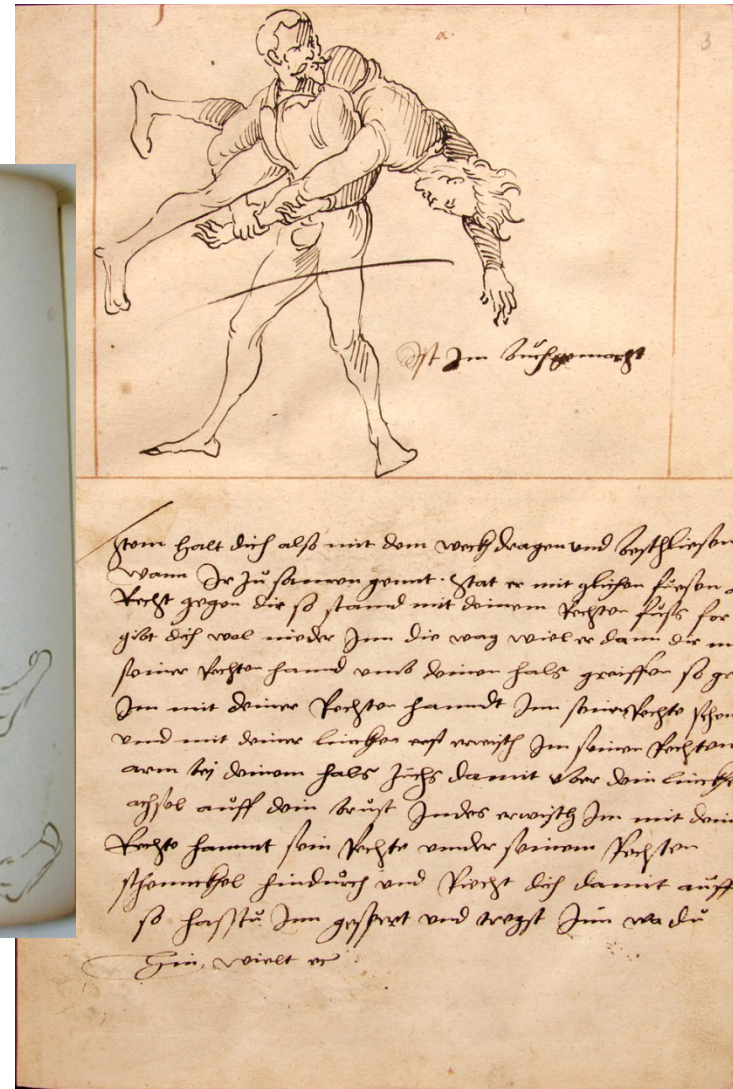 a.
3
Ist Im buch gemacht
Item halt dich also mit dem weck dragen und beschliesen
wann Ir zu samen gennt. Stat er mit glichen fuesen
Recht gegen dir so stannd mit deinem Rechten fuss for
gibt dich wol nieder Inn die wag wiel er dann dir
seiner Rechten hannd umb deinen hals greiffen so
Im mit deiner Rechten hanndt Inn seine Rechte
und mit deiner lincken erst erwisch Im seinen Rechten
arm bej deinem hals zuchs damit uber dein
achsel auff dein brust Indes erwisch Im mit
Rechte hannt sein Rechte unnder seinem Rechten
schennckhel hindurch und Riecht dich damit auff
so hasstu Inn gespert und tregst Inn wa du
hin, wielt